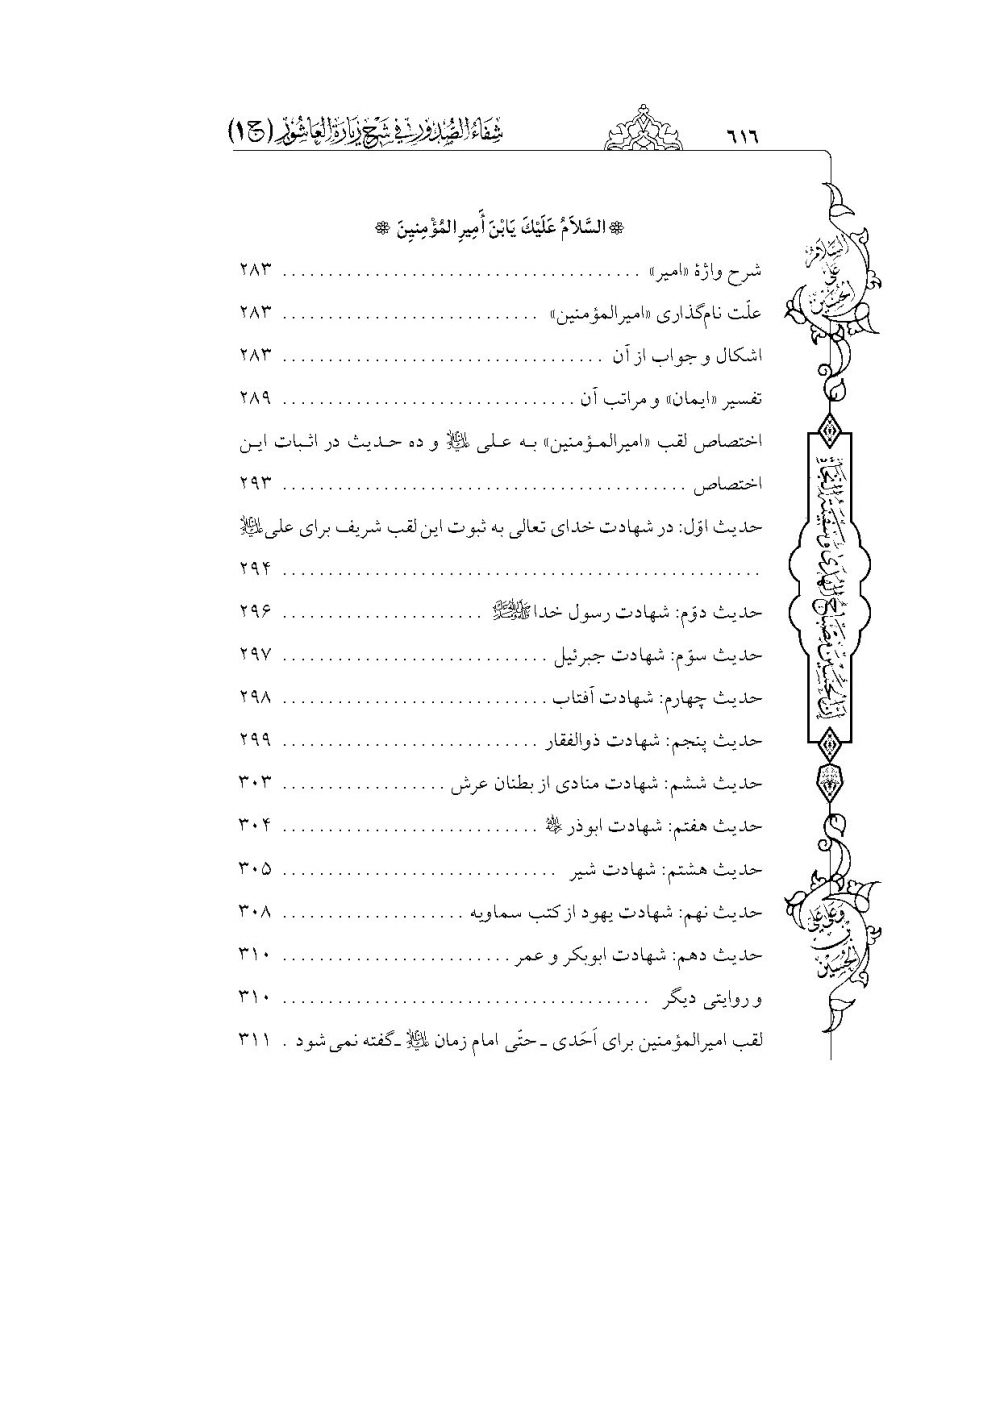 ۶۱۶
شِفَاءُ الصُّدُورِ فِي شَرْحِ زِيَارَةِ الْعَاشُورِ (ج ۱)
السَّلاَمُ عَلَيْكَ يَابْنَ أَمِيرِ المُؤْمنِينَ
شرح واژۀ «امیر» ........ ۲۸۳
علّت نام‌گذاری «امیرالمؤمنین» ........ ۲۸۳
اشکال و جواب از آن ........ ۲۸۳
تفسیر «ایمان» و مراتب آن ........ ۲۸۹
اختصاص لقب «امیرالمـؤمنین» بـه عـلی علیه السلام و ده حـدیث در اثـبات ایـن
اختصاص ........ ۲۹۳
حدیث اوّل: در شهادت خدای تعالی به ثبوت این لقب شریف برای علی علیه السلام
........ ۲۹۴
حدیث دوّم: شهادت رسول خدا ﷺ ........ ۲۹۶
حدیث سوّم: شهادت جبرئیل ........ ۲۹۷
حدیث چهارم: شهادت آفتاب ........ ۲۹۸
حدیث پنجم: شهادت ذوالفقار ........ ۲۹۹
حدیث ششم: شهادت منادی از بطنان عرش ........ ۳۰۳
حدیث هفتم: شهادت ابوذر ........ ۳۰۴
حدیث هشتم: شهادت شیر ........ ۳۰۵
حدیث نهم: شهادت یهود از کتب سماویه ........ ۳۰۸
حدیث دهم: شهادت ابوبکر و عمر ........ ۳۱۰
و روایتی دیگر ........ ۳۱۰
لقب امیرالمؤمنین برای اَحَدی ـ حتّی امام زمان علیه السلام ـ گفته نمی شود . ۳۱۱
السلام
علی
الحسین
إن الحسین مصباح الهدی و سفینة النجاة
و علی علی
بن
الحسین